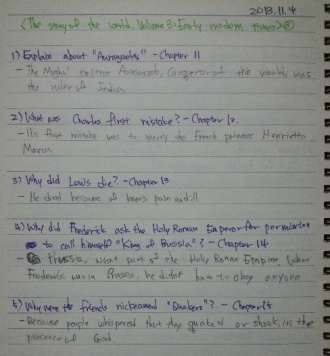 2013.11.4
<The story of the world, Volume 3: Early modern times>
1) Explain about "Aurangzeb" - Chapter 11
- The Moghul emperor Aurangzeb, Conqueror of the world, was
the ruler of India
2) What was Charles first mistake? - Chapter 12.
- His first mistake was to marry the French princess Henrietta
Maria
3) Why did Louis die? - Chapter 13
- He died because of pain and ill
4) Why did Frederick ask the Holy Roman Emperor for permission
to call himself "King of Prussia"? - Chapter 14
- Prussia, wasn't part of the Holy Roman Empire. When
Frederick was in Prussia, he didn't have to obey anyone
5) Why were the friends nicknamed "Quakers"? - Chapter 15
- Because people whispered that they quaked or shook, in the
presence of God.